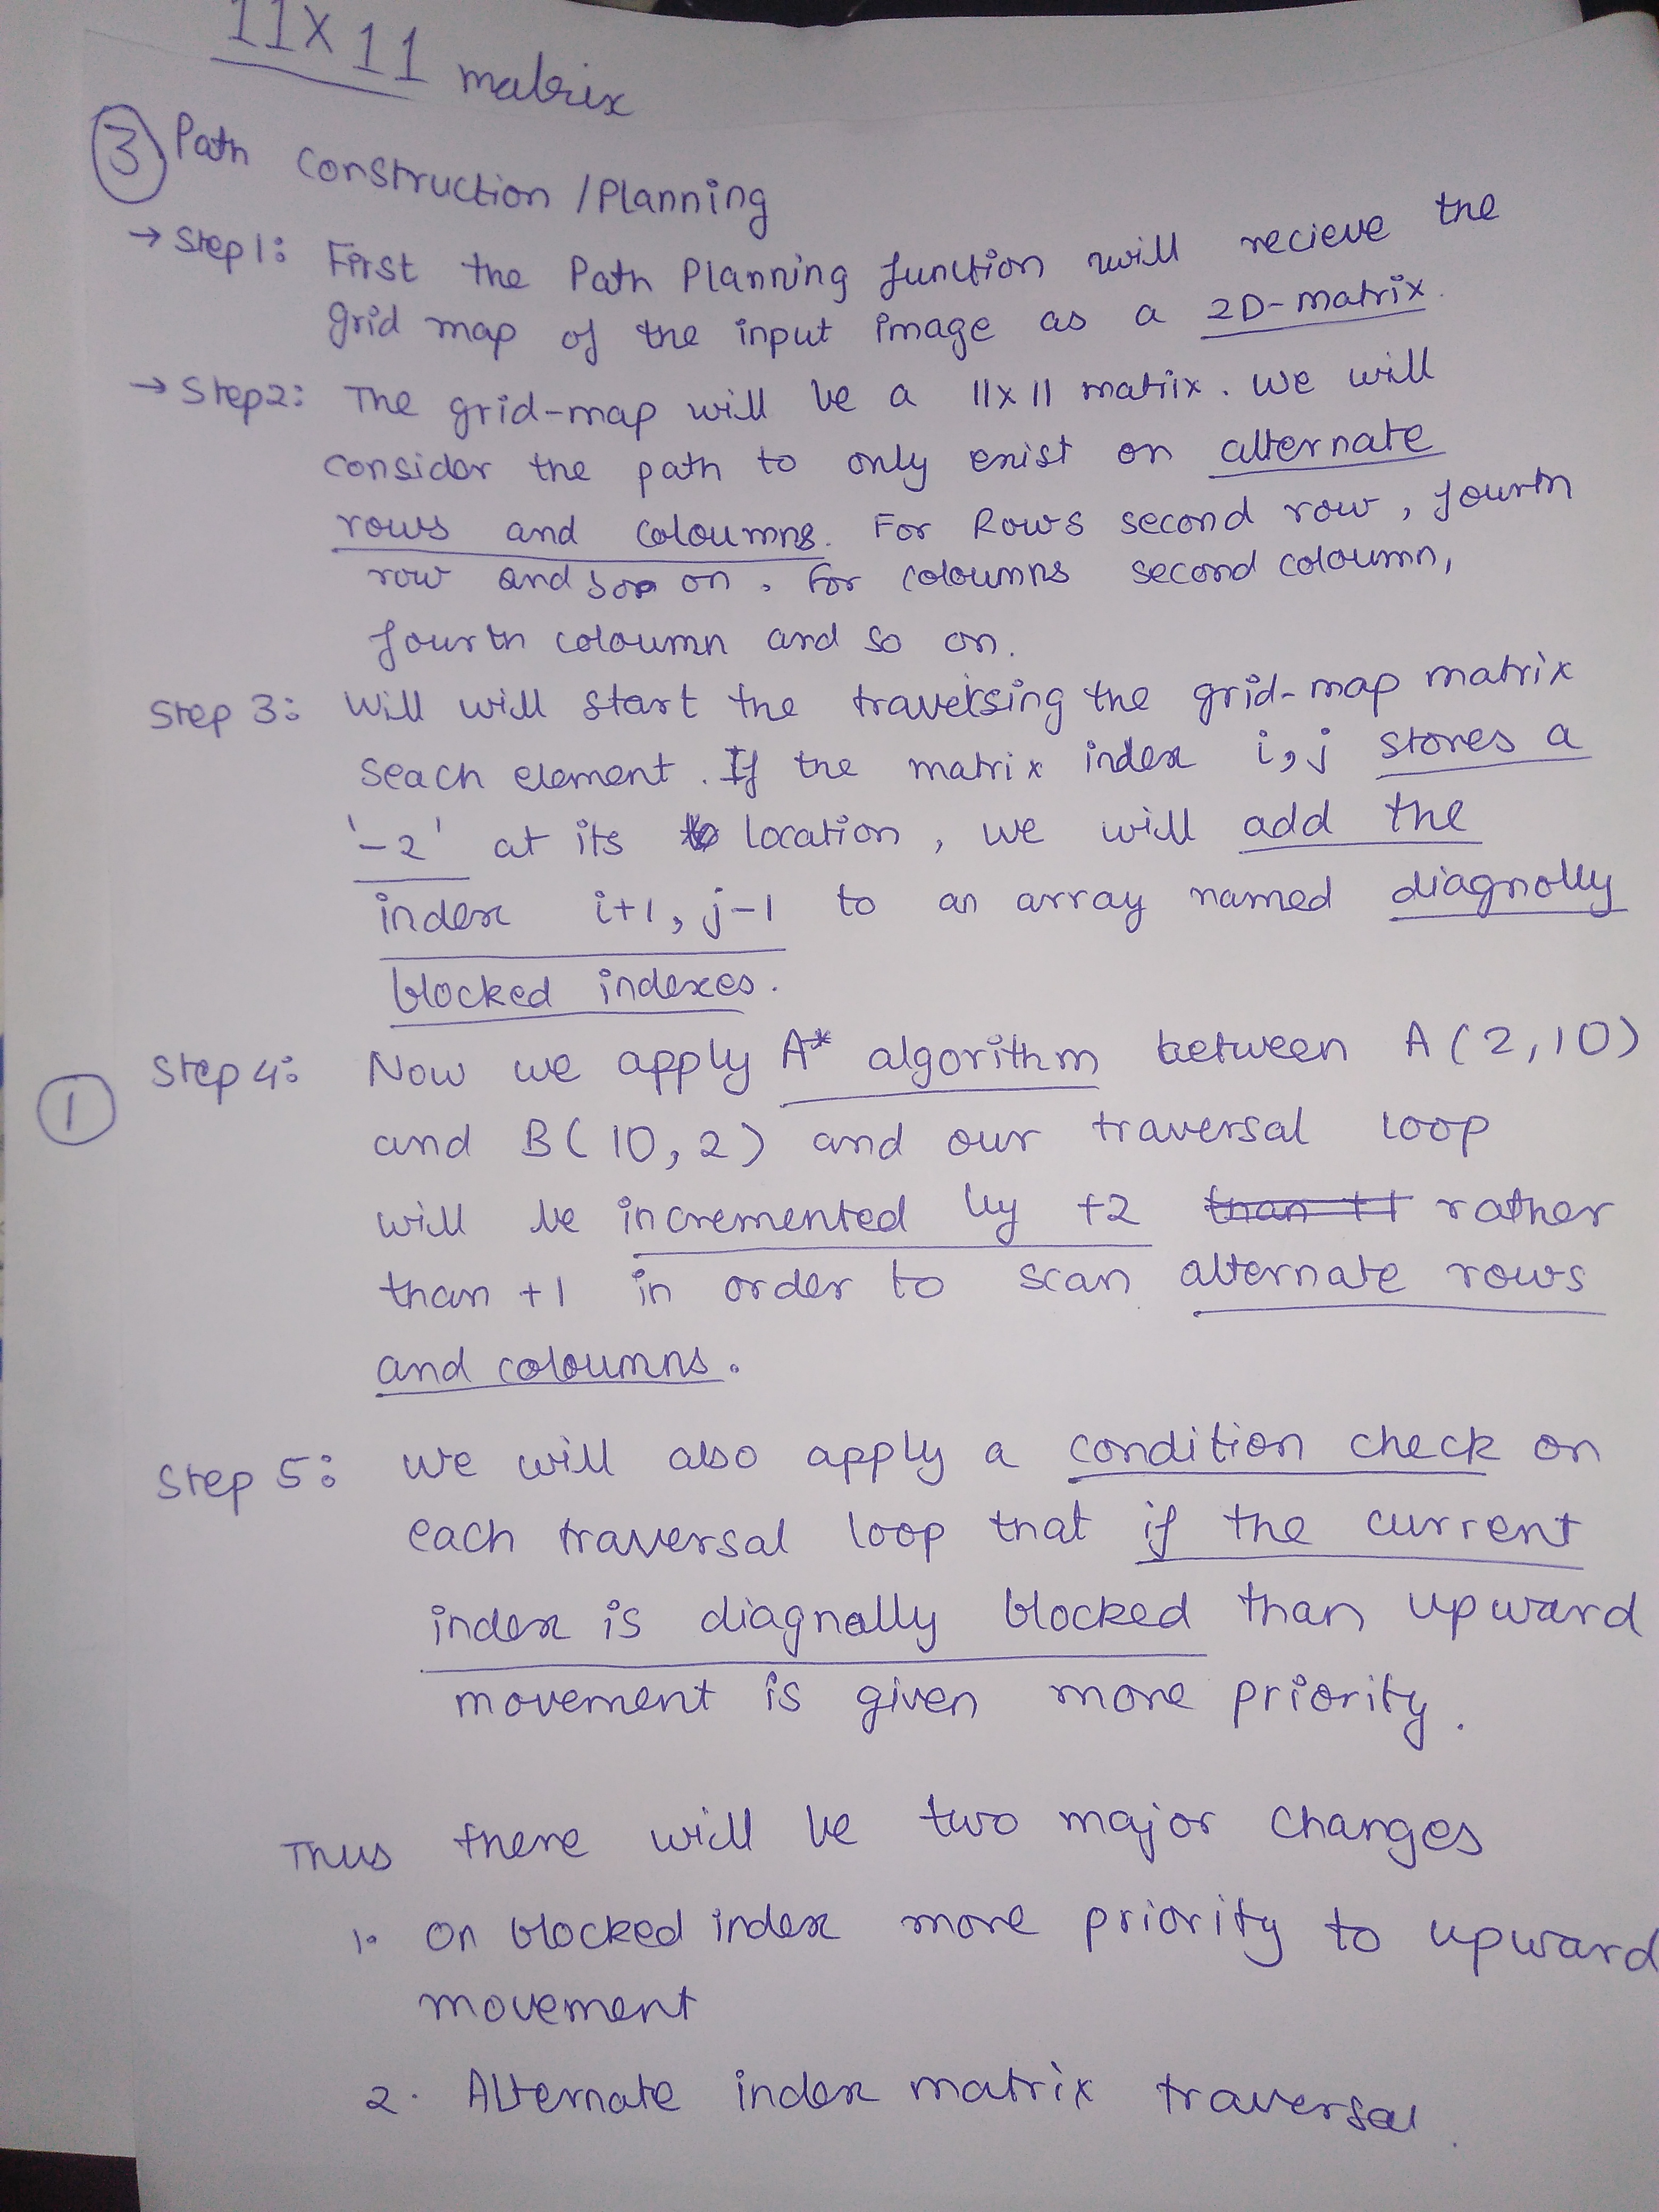 11x11 matrix
③ Path Construction / Planning
→ Step 1: First the Path Planning function will recieve the
grid map of the input image as a 2D-matrix.
→ Step2: The grid-map will be a 11x11 matrix. We will
consider the path to only exist on alternate
rows and coloumns. For Rows second row, fourth
row and so on. For coloumns second coloumn,
fourth coloumn and so on.
Step 3: Will will start the traversing the grid-map matrix
seach element. If the matrix index i,j stores a
'-2' at its location, we will add the
index i+1, j-1 to an array named diagnolly
blocked indexes.
Step 4: Now we apply A* algorithm between A(2,10)
①
and B(10,2) and our traversal loop
will be incremented by +2 than +1 rather
than +1 in order to scan alternate rows
and coloumns.
Step 5: We will also apply a condition check on
each traversal loop that if the current
index is diagnally blocked than upward
movement is given more priority.
Thus there will be two major changes
1. On blocked index more priority to upward
movement
2. Alternate index matrix traversal.